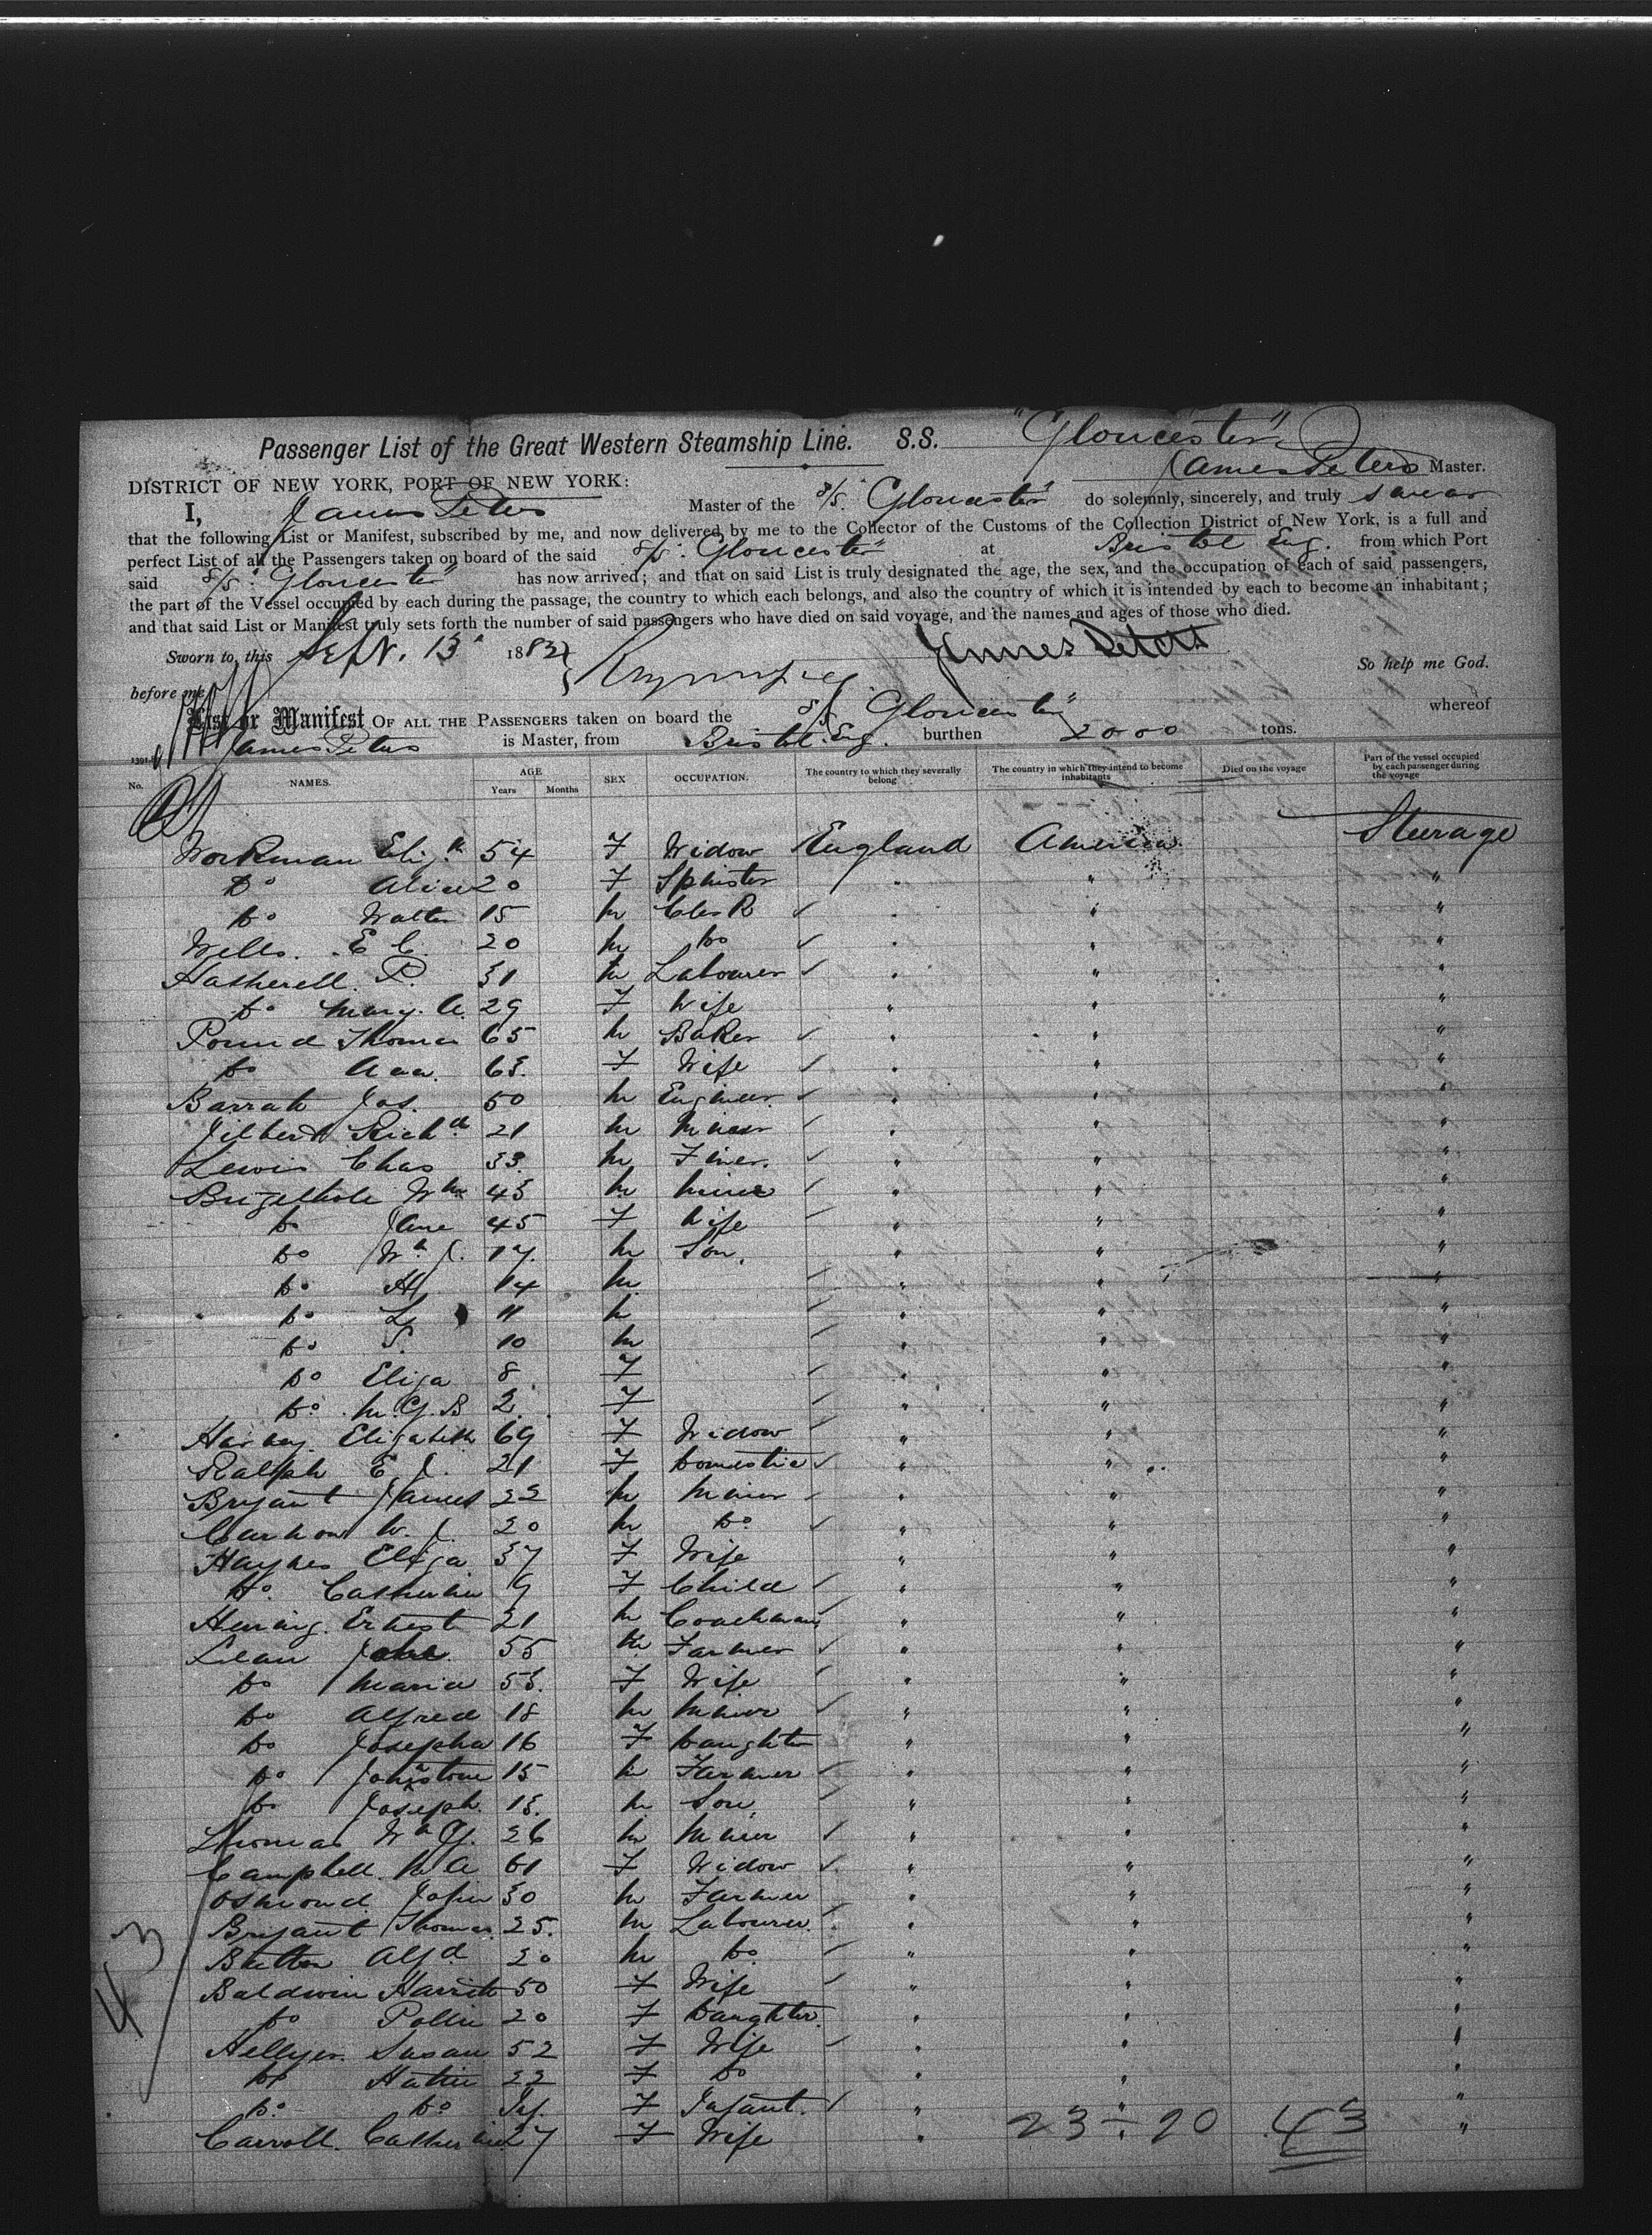 Passenger List of the Great Western Steamship Line. S.S. "Gloucester"
James Peters Master.
DISTRICT OF NEW YORK, PORT OF NEW YORK:
I, James Peters Master of the S/S. "Gloucester" do solemnly, sincerely, and truly swear
that the following List or Manifest, subscribed by me, and now delivered by me to the Collector of the Customs of the Collection District of New York, is a full and
perfect List of all the Passengers taken on board of the said S/S. "Gloucester" at Bristol Eng. from which Port
said S/S. "Gloucester" has now arrived; and that on said List is truly designated the age, the sex, and the occupation of each of said passengers,
the part of the Vessel occupied by each during the passage, the country to which each belongs, and also the country of which it is intended by each to become an inhabitant;
and that said List or Manifest truly sets forth the number of said passengers who have died on said voyage, and the names and ages of those who died.
Sworn to, this Sept. 13 188 James Peters So help me God.
before me
List or Manifest OF ALL THE PASSENGERS taken on board the S/S "Gloucester" whereof
James Peters is Master, from Bristol Eng. burthen 2000 tons.
No. NAMES. AGE Years Months SEX OCCUPATION. The country to which they severally belong The country in which they intend to become inhabitants Died on the voyage Part of the vessel occupied by each passenger during the voyage
Workman Eliz.h 54 F Widow England America Steerage
Do Alice 20 F Spinster " " "
Do Walter 15 M Clerk " " "
Wells. E C. 20 M Do " " "
Hatherell. P. 31 M Labourer " " "
Do Mary. A. 29 F Wife " " "
Pound Thomas 65 M Baker " " "
Do Ann. 63. F Wife " " "
Barratt Jas. 50 M Engineer. " " "
Jilbert Richd 21 M Miner " " "
Lewis Chas 33. M " " "
Wm 43 M Miner " " "
Do Jane 45 F Wife " " "
Do Wm J. 17. M Son. " " "
Do H 14 M " " "
Do L 11 M " " "
Do S. 10 M " " "
Do Eliza 8 F " " "
Do M. G. B 2. F " " "
Harvey. Elizabeth 69 F Widow " " "
Ralph E J. 21 F Domestic " " "
Bryant James 22 M Miner " " "
W. J. 20 M Do " " "
Haynes Eliza 37 F Wife " " "
Do. Catherine 9 F Child " " "
Ernest 21 M Coachman " " "
Lean John. 55 M Farmer " " "
Do Maria 53. F Wife " " "
Do Alfred 18 M Miner " " "
Do Josepha 16 F Daughter " " "
Do Johnstone 15 M Farmer " " "
Do Joseph. 13. M Son. " " "
Thomas Wm 26 M Miner " " "
Campbell. M A 61 F Widow " " "
Osmond. John 30 M Farmer " " "
Bryant Thomas. 25. M Labourer. " " "
Alfd. 20 M Do. " " "
Baldwin Harriet 50 F Wife " " "
Do Pollie 20 F Daughter. " " "
Hellyer. Susan 52 F Wife " " "
Do Hattie 22 F Do " " "
Do. Do F Infant. " " "
Carroll. Catherine 27 F Wife " "
23 - 20 43
43